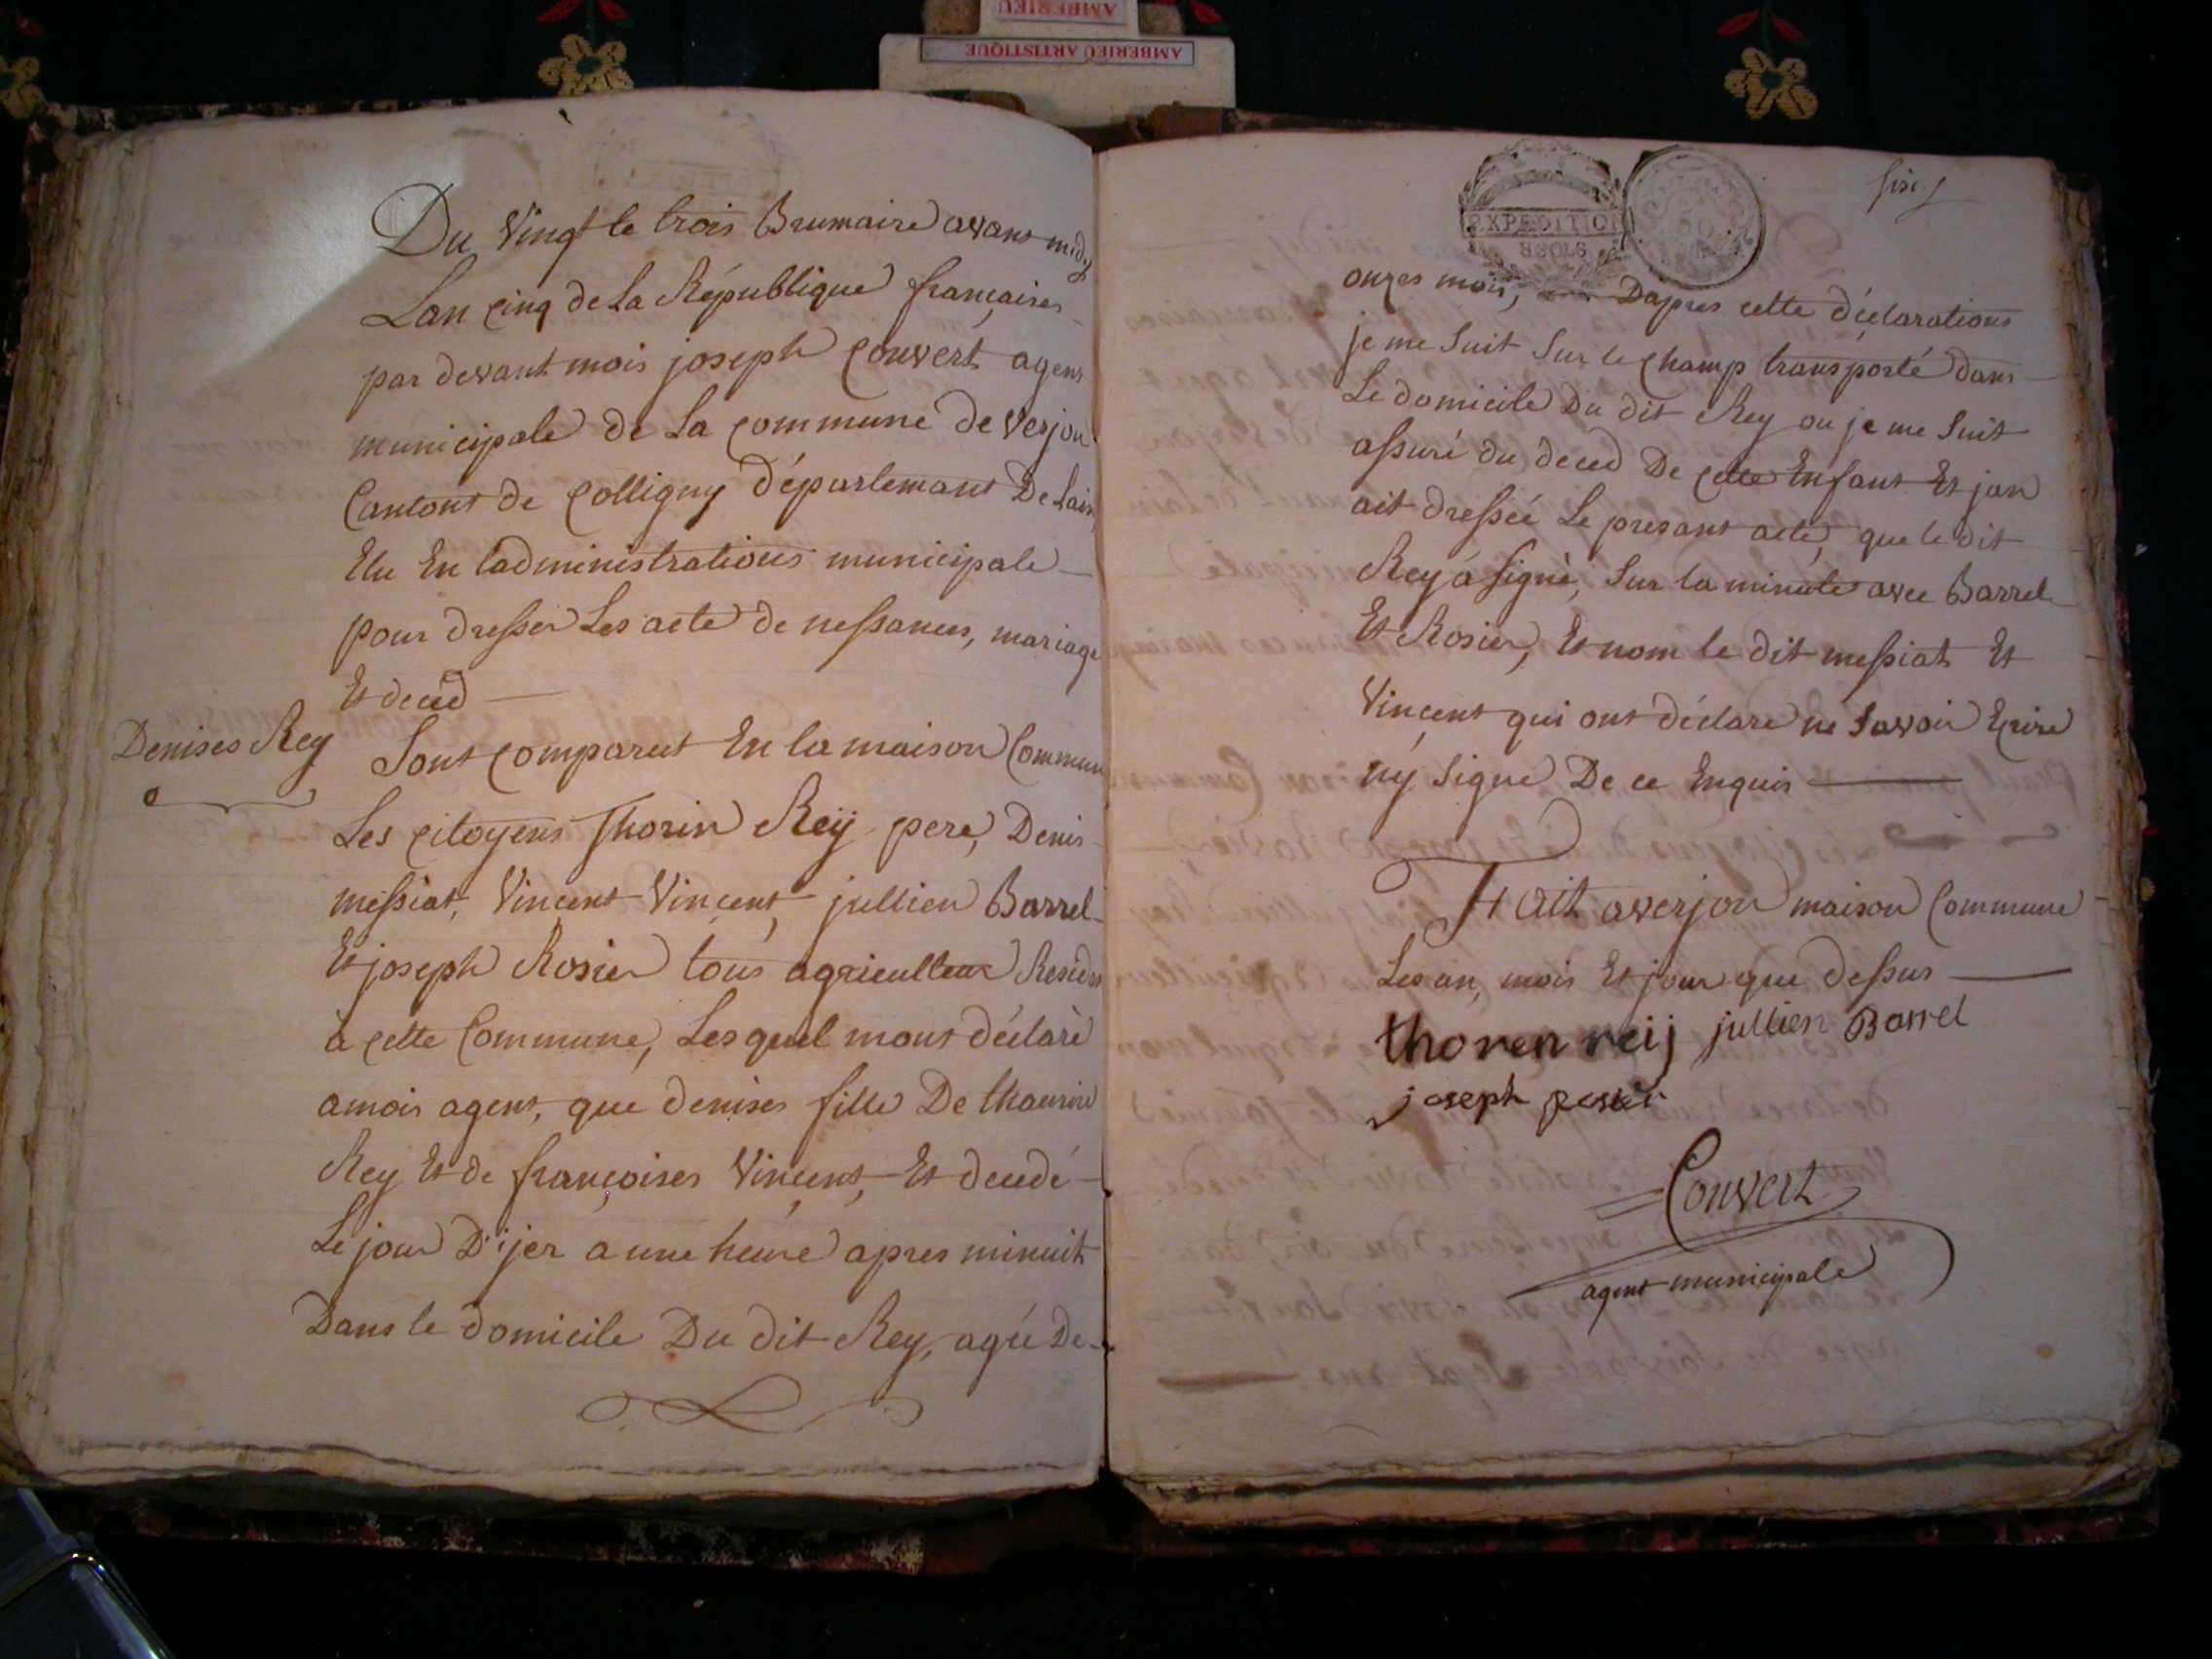 AMBERIEU
AMBERIEU ARTISTIQUE
Du Vingt le trois Brumaire avant midy
Lan cinq de La République françaises
par devant mois joseph Convert agent
municipale de La commune de Verjon
Cantont de Colligny départemant De Lain
Elu En ladministrations municipale
pour dresser Les acte de nessances, mariage
Et decéd
Denises Rey
Sont comparut En la maison Commune
Les citoyens Thorin Reÿ pere, Denis
messiat, Vincent Vincent, jullien Barrel
Et joseph Rosier tous agriculteur Residns
a cette Commune, Lesquel mont déclaré
a mois agent, que denises fille De thaurin
Rey Et de françoises Vincent, Et decedé
Le jour D'ijer a une heure apres minuit
Dans le domicile Du dit Rey, agée De
six
EXPEDITION
REGLE
50
onzes mois, Dapres cette déclarations
je me Suit Sur le champ transporté dans
Le domicile Du dit Rey ou je me Suit
assuré du deced De cette Enfant Et jan
ait dressée Le presant acte, que le dit
Rey a signé, Sur la minute avec Barrel
Et Rosier, Et nom le dit messiat Et
Vincent qui ont déclare ne Savoir Ecrire
ny Signe De ce Enquis
Fait a verjon maison Commune
Les an, mois Et jour que dessus
thoren reij jullien Barrel
joseph rosier
Convert
agent municipale